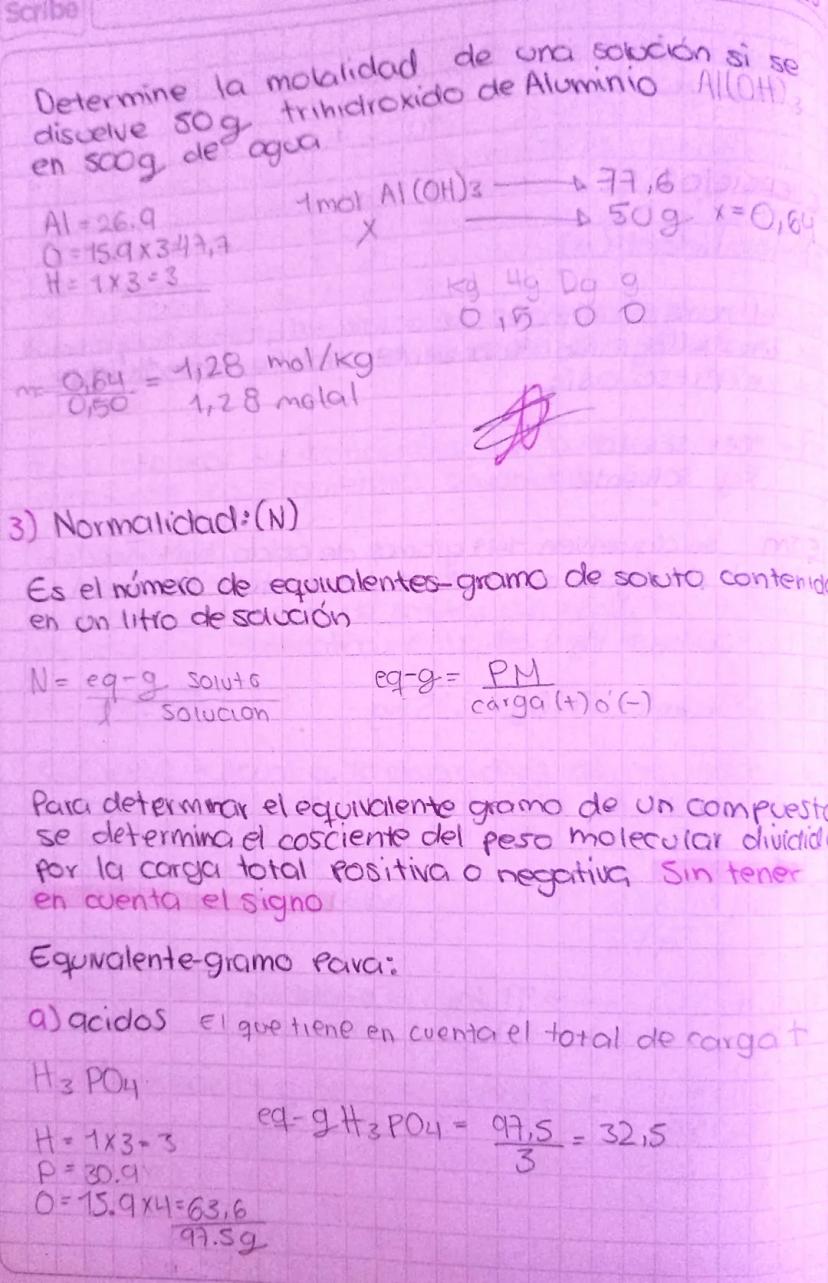 Scribe
Determine la molalidad de una solución si se
disuelve 50g trihidroxido de Aluminio Al(OH)3
en 500g de agua
1mol Al(OH)3 → 77,6
Al = 26.9
X → 50g x=0,64
O = 15.9x3 47,7
H = 1x3=3
Kg Hg Dg g
0,5 0 0
m= 0,64/0,50 = 1,28 mol/kg
1,28 molal
3) Normalidad:(N)
Es el número de equivalentes-gramo de soluto contenido
en un litro de solución
N= eq-g soluto / l solucion
eq-g= PM / carga (+) o (-)
Para determinar el equivalente gramo de un compuesto
se determina el cosciente del peso molecular dividid
por la carga total positiva o negativa, Sin tener
en cuenta el signo
Equivalente-gramo Para:
a) acidos El que tiene en cuenta el total de carga +
H3 PO4
eq-g H3PO4 = 97,5/3 = 32,5
H = 1x3=3
P = 30.9
O = 15.9x4=63,6
97.5g